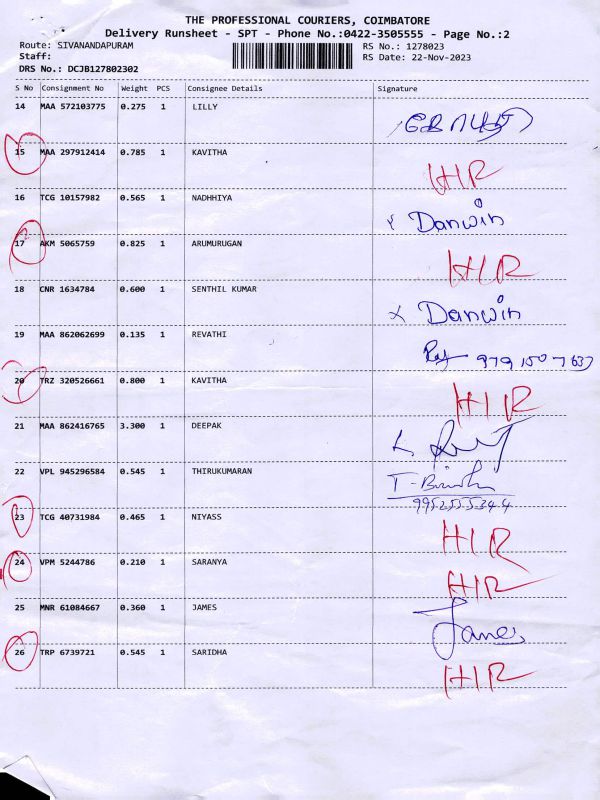 THE PROFESSIONAL COURIERS, COIMBATORE
Delivery Runsheet - SPT - Phone No.:0422-3505555 - Page No.:2
Route: SIVANANDAPURAM RS No.: 1278023
Staff: RS Date: 22-Nov-2023
DRS No.: DCJB127802302
S No Consignment No Weight PCS Consignee Details Signature
14 MAA 572103775 0.275 1 LILLY
15 MAA 297912414 0.785 1 KAVITHA HIR
16 TCG 10157982 0.565 1 NADHHIYA Danwin
17 AKM 5065759 0.825 1 ARUMURUGAN HIR
18 CNR 1634784 0.600 1 SENTHIL KUMAR x Danwin
19 MAA 862062699 0.135 1 REVATHI
20 TRZ 320526661 0.800 1 KAVITHA HIR
21 MAA 862416765 3.300 1 DEEPAK
22 VPL 945296584 0.545 1 THIRUKUMARAN
23 TCG 40731984 0.465 1 NIYASS HIR
24 VPM 5244786 0.210 1 SARANYA HIR
25 MNR 61084667 0.360 1 JAMES James
26 TRP 6739721 0.545 1 SARIDHA HIR